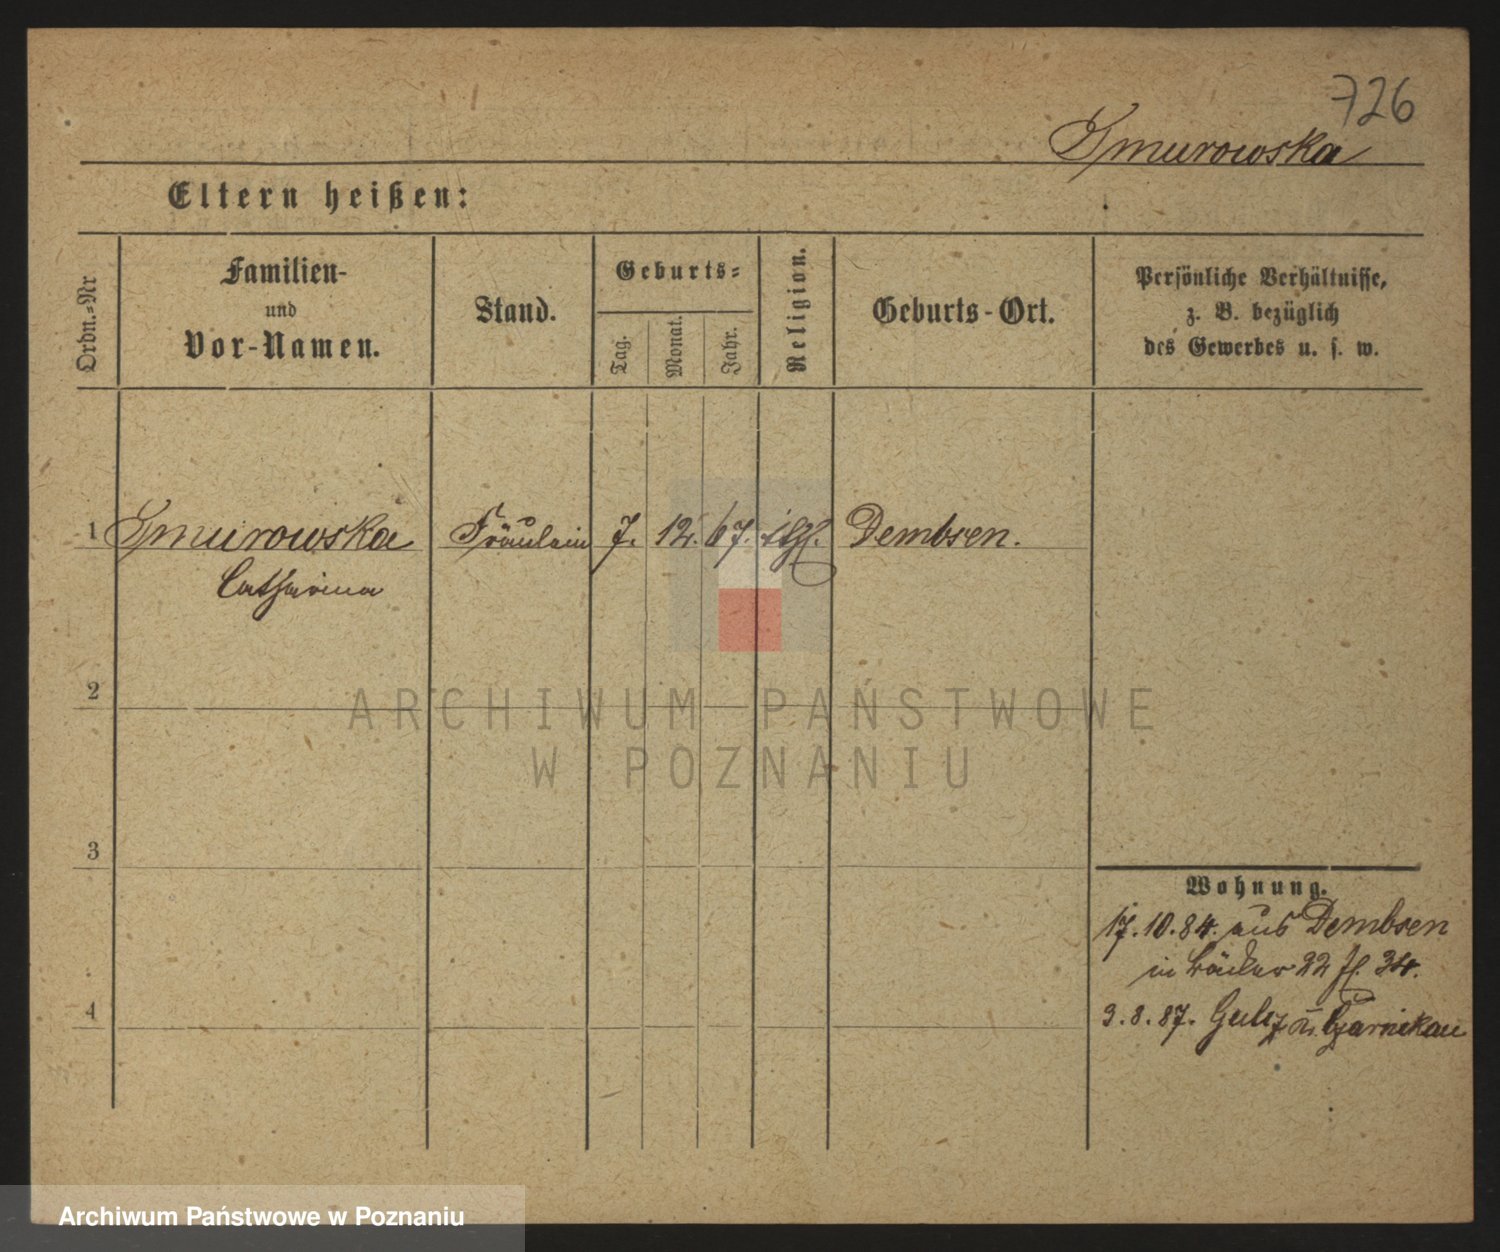 726
Zmurowska
Eltern heißen:
Ordn.-Nr
Familien-
und
Vor-Namen.
Stand.
Geburts-
Tag.
Monat.
Jahr.
Religion.
Geburts-Ort.
Persönliche Verhältnisse,
z. B. bezüglich
des Gewerbes u. s. w.
1 Zmurowska Fräulein 7. 12. 67. ktgl. Dembsen.
Catharina
2
3
4
Wohnung.
17.10.84. aus Dembsen
in Bäcker 22 fl. 34.
3.8.87. n. Czarnikau
ARCHIWUM PAŃSTWOWE
W POZNANIU
Archiwum Państwowe w Poznaniu